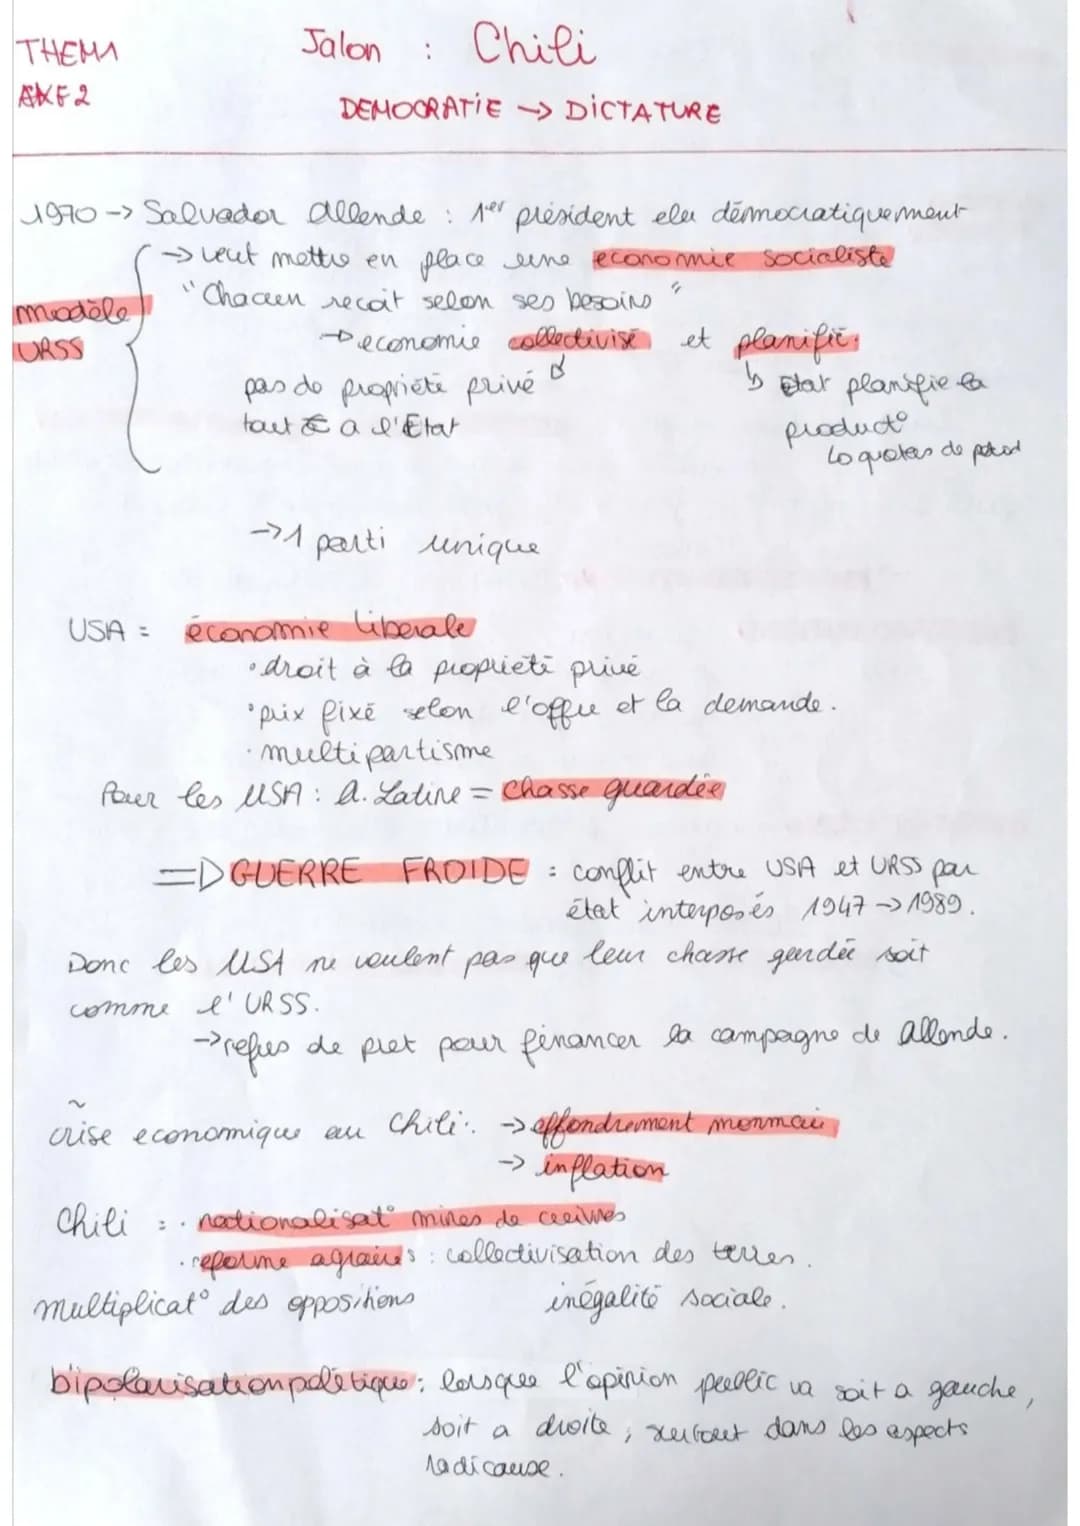 THEM1
Jalon : Chili
AXE 2
DEMOCRATIE -> DICTATURE
1970 -> Salvador Allende : 1er président elu démocratiquement
-> veut mettre en place une economie socialiste
"Chacun recoit selon ses besoins"
modèle
URSS
-> economie collectivisé et planifié.
pas de propriété privé
tout est a l'Etat
↳ Etat planifie la
product°
↳ quotas de
-> 1 parti unique
USA = économie liberale
• droit à la propriété privé
• prix fixé selon l'offre et la demande.
• multipartisme
Pour les USA : A. Latine = Chasse guardée
=> GUERRE FROIDE : conflit entre USA et URSS par
état interposés 1947 -> 1989.
Donc les USA ne veulent pas que leur chasse gardée soit
comme l'URSS.
-> refus de pret pour financer la campagne de Allende.
crise economique au Chili : -> effondrement monnaie
-> inflation
Chili : • nationalisat° mines de cuivres
• reforme agraires : collectivisation des terres.
multiplicat° des oppositions
inégalité sociale.
bipolarisation politique : lorsque l'opinion public va soit a gauche,
soit a droite, surtout dans les aspects
radicause.